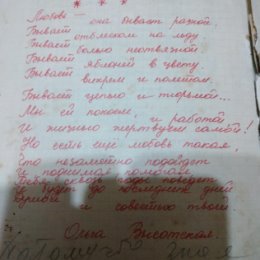 * * *
Любовь — она бывает разной.
Бывает отблеском на льду.
Бывает болью неотвязной.
Бывает яблоней в цвету.
Бывает вихрем и полетом.
Бывает цепью и тюрьмой...
Мы ей покоем, и работой
И жизнью жертвуем самой!
Но есть ещё любовь такая,
Что незаметно подойдет
И поднимая, помогая,
Тебя сквозь годы поведет
И будет до последних дней
и совестью твоей.
Ольга Высотская.